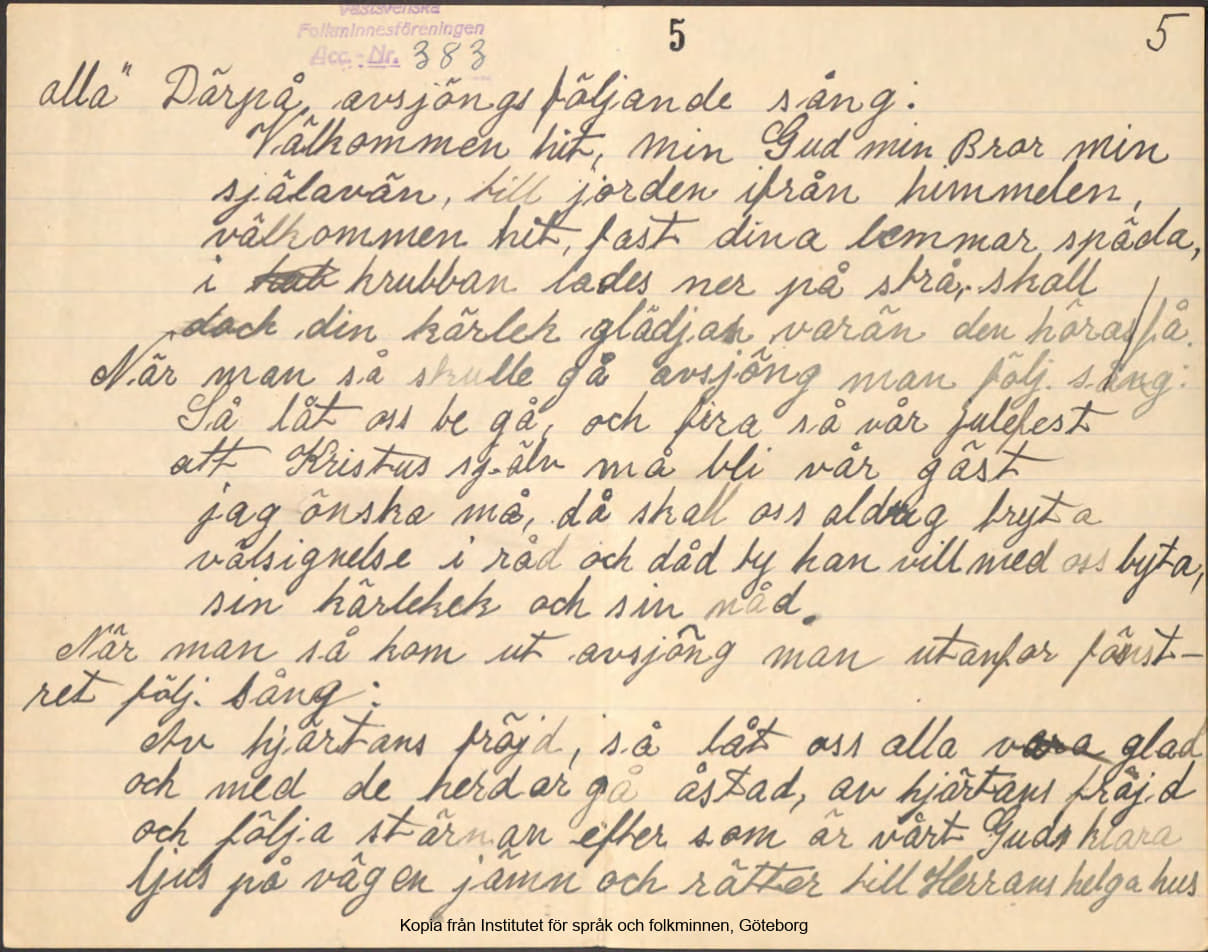 Västsvenska
Folkminnesföreningen
Acc.-Nr. 383
5
5
alla" Därpå, avsjöngs följande sång:
Välkommen hit, min Gud min Bror min
själavän, till jorden ifrån himmelen,
välkommen hit, fast dina lemmar späda,
i krubban lades ner på strå, skall
doch din kärlek glädja varän den höras få.
När man så skulle gå avsjöng man följ. sång:
Så låt oss be gå, och fira så vår julefest
att Kristus själv må bli vår gäst
jag önska må, då skall oss aldrig bryta
välsignelse i råd och dåd ty han vill med oss byta,
sin kärlekek och sin nåd.
När man så kom ut avsjöng man utanfor fönst-
ret följ. sång:
Av hjärtans fröjd, så låt oss alla vara glad
och med de herdar gå åstad, av hjärtans fröjd
och följa stärnan efter som är vårt Guds klara
ljus på vägen jämn och rätter till Herrans helga hus
Kopia från Institutet för språk och folkminnen, Göteborg